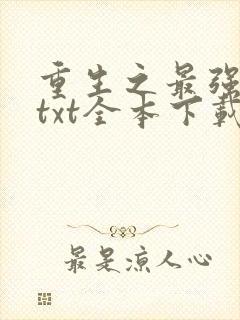 重生之最强
txt全本下载
最是凉人心